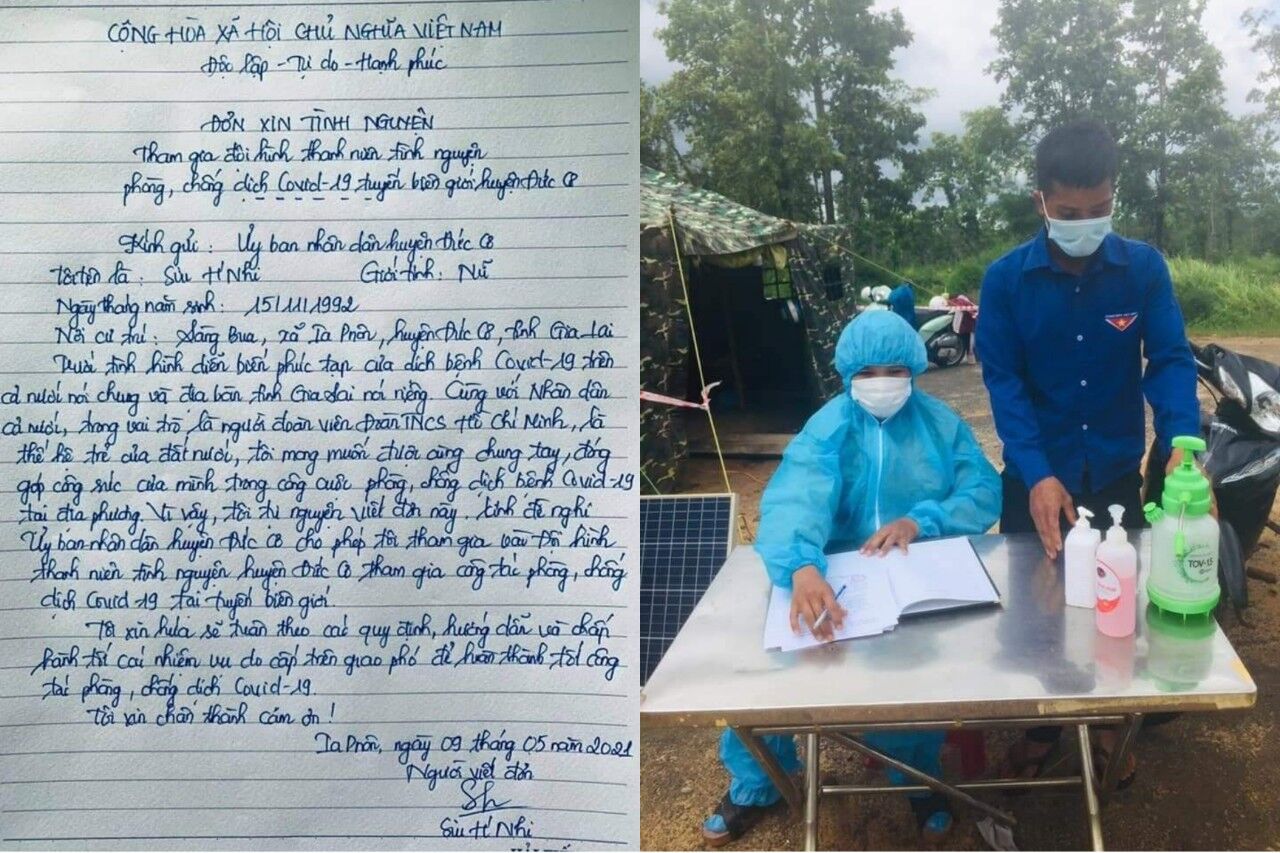 CỘNG HÒA XÃ HỘI CHỦ NGHĨA VIỆT NAM
Độc lập - Tự do - Hạnh phúc
ĐƠN XIN TÌNH NGUYỆN
Tham gia đội hình thanh niên tình nguyện
phòng, chống dịch Covid-19 tuyến biên giới huyện Đức Cơ
Kính gửi: Ủy ban nhân dân huyện Đức Cơ
Tôi tên là: Siu H'Nhi Giới tính: Nữ
Ngày tháng năm sinh: 15/11/1992
Nơi cư trú: Làng Bua, xã Ia Pnôn, huyện Đức Cơ, tỉnh Gia Lai
Dưới tình hình diễn biến phức tạp của dịch bệnh Covid-19 trên
cả nước nói chung và địa bàn tỉnh Gia Lai nói riêng. Cùng với Nhân dân
cả nước, trong vai trò là người đoàn viên Đoàn TNCS Hồ Chí Minh, là
thế hệ trẻ của đất nước, tôi mong muốn được cùng chung tay, đóng
góp công sức của mình trong công cuộc phòng, chống dịch bệnh Covid-19
tại địa phương. Vì vậy, tôi tự nguyện viết đơn này, kính đề nghị
Ủy ban nhân dân huyện Đức Cơ cho phép tôi tham gia vào Đội hình
thanh niên tình nguyện huyện Đức Cơ tham gia công tác phòng, chống
dịch Covid-19 tại tuyến biên giới.
Tôi xin hứa sẽ tuân theo các quy định, hướng dẫn và chấp
hành tốt các nhiệm vụ do cấp trên giao phó để hoàn thành tốt công
tác phòng, chống dịch Covid-19.
Tôi xin chân thành cám ơn!
Ia Pnôn, ngày 09 tháng 05 năm 2021
Người viết đơn
Sh
Siu H'Nhi
TCV-1.5